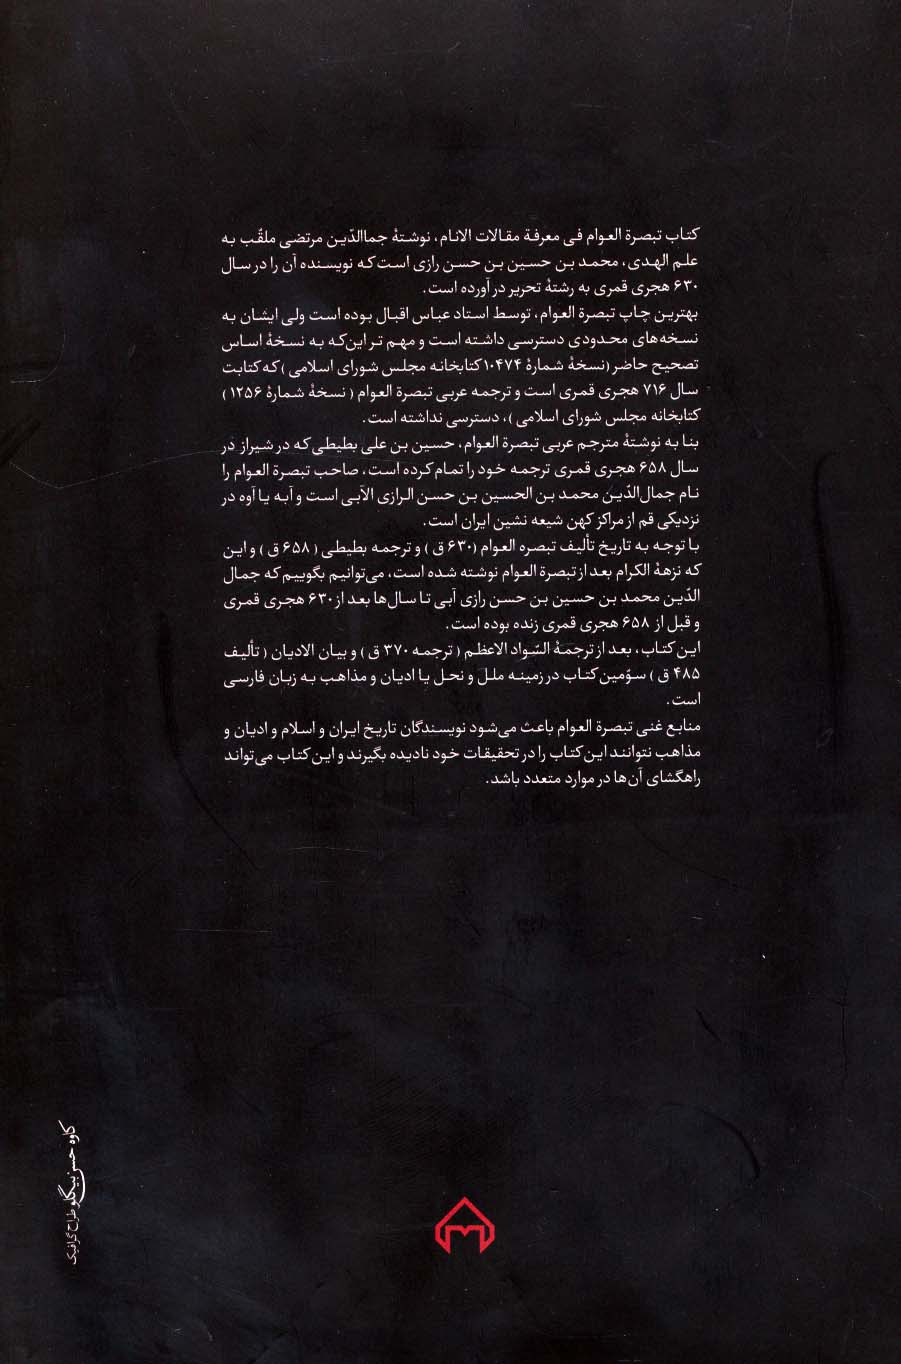 کتاب تبصرة العوام فی معرفة مقالات الانام، نوشتهٔ جماالدّین مرتضی ملقّب به
علم الهدی، محمد بن حسین بن حسن رازی است که نویسنده آن را در سال
۶۳۰ هجری قمری به رشتهٔ تحریر در آورده است.
بهترین چاپ تبصرة العوام، توسط استاد عباس اقبال بوده است ولی ایشان به
نسخه‌های محدودی دسترسی داشته است و مهم تر این‌که به نسخهٔ اساس
تصحیح حاضر (نسخهٔ شمارهٔ ۱۰۴۷۴ کتابخانه مجلس شورای اسلامی) که کتابت
سال ۷۱۶ هجری قمری است و ترجمه عربی تبصرة العوام (نسخهٔ شمارهٔ ۱۲۵۶)
کتابخانه مجلس شورای اسلامی)، دسترسی نداشته است.
بنا به نوشتهٔ مترجم عربی تبصرة العوام، حسین بن علی بطیطی که در شیراز در
سال ۶۵۸ هجری قمری ترجمه خود را تمام کرده است، صاحب تبصرة العوام را
نام جمال‌الدّین محمد بن الحسین بن حسن الرازی الآبی است و آبه یا آوه در
نزدیکی قم از مراکز کهن شیعه نشین ایران است.
با توجه به تاریخ تألیف تبصره العوام (۶۳۰ ق) و ترجمه بطیطی (۶۵۸ ق) و این
که نزهة الکرام بعد از تبصرة العوام نوشته شده است، می‌توانیم بگوییم که جمال
الدّین محمد بن حسین بن حسن رازی آبی تا سال‌ها بعد از ۶۳۰ هجری قمری
و قبل از ۶۵۸ هجری قمری زنده بوده است.
این کتاب، بعد از ترجمهٔ السّواد الاعظم (ترجمه ۳۷۰ ق) و بیان الادیان (تألیف
۴۸۵ ق) سوّمین کتاب در زمینه ملل و نحل یا ادیان و مذاهب به زبان فارسی
است.
منابع غنی تبصرة العوام باعث می‌شود نویسندگان تاریخ ایران و اسلام و ادیان و
مذاهب نتوانند این کتاب را در تحقیقات خود نادیده بگیرند و این کتاب می‌تواند
راهگشای آن‌ها در موارد متعدد باشد.
کاوه حسن بیگلو طراح گرافیک